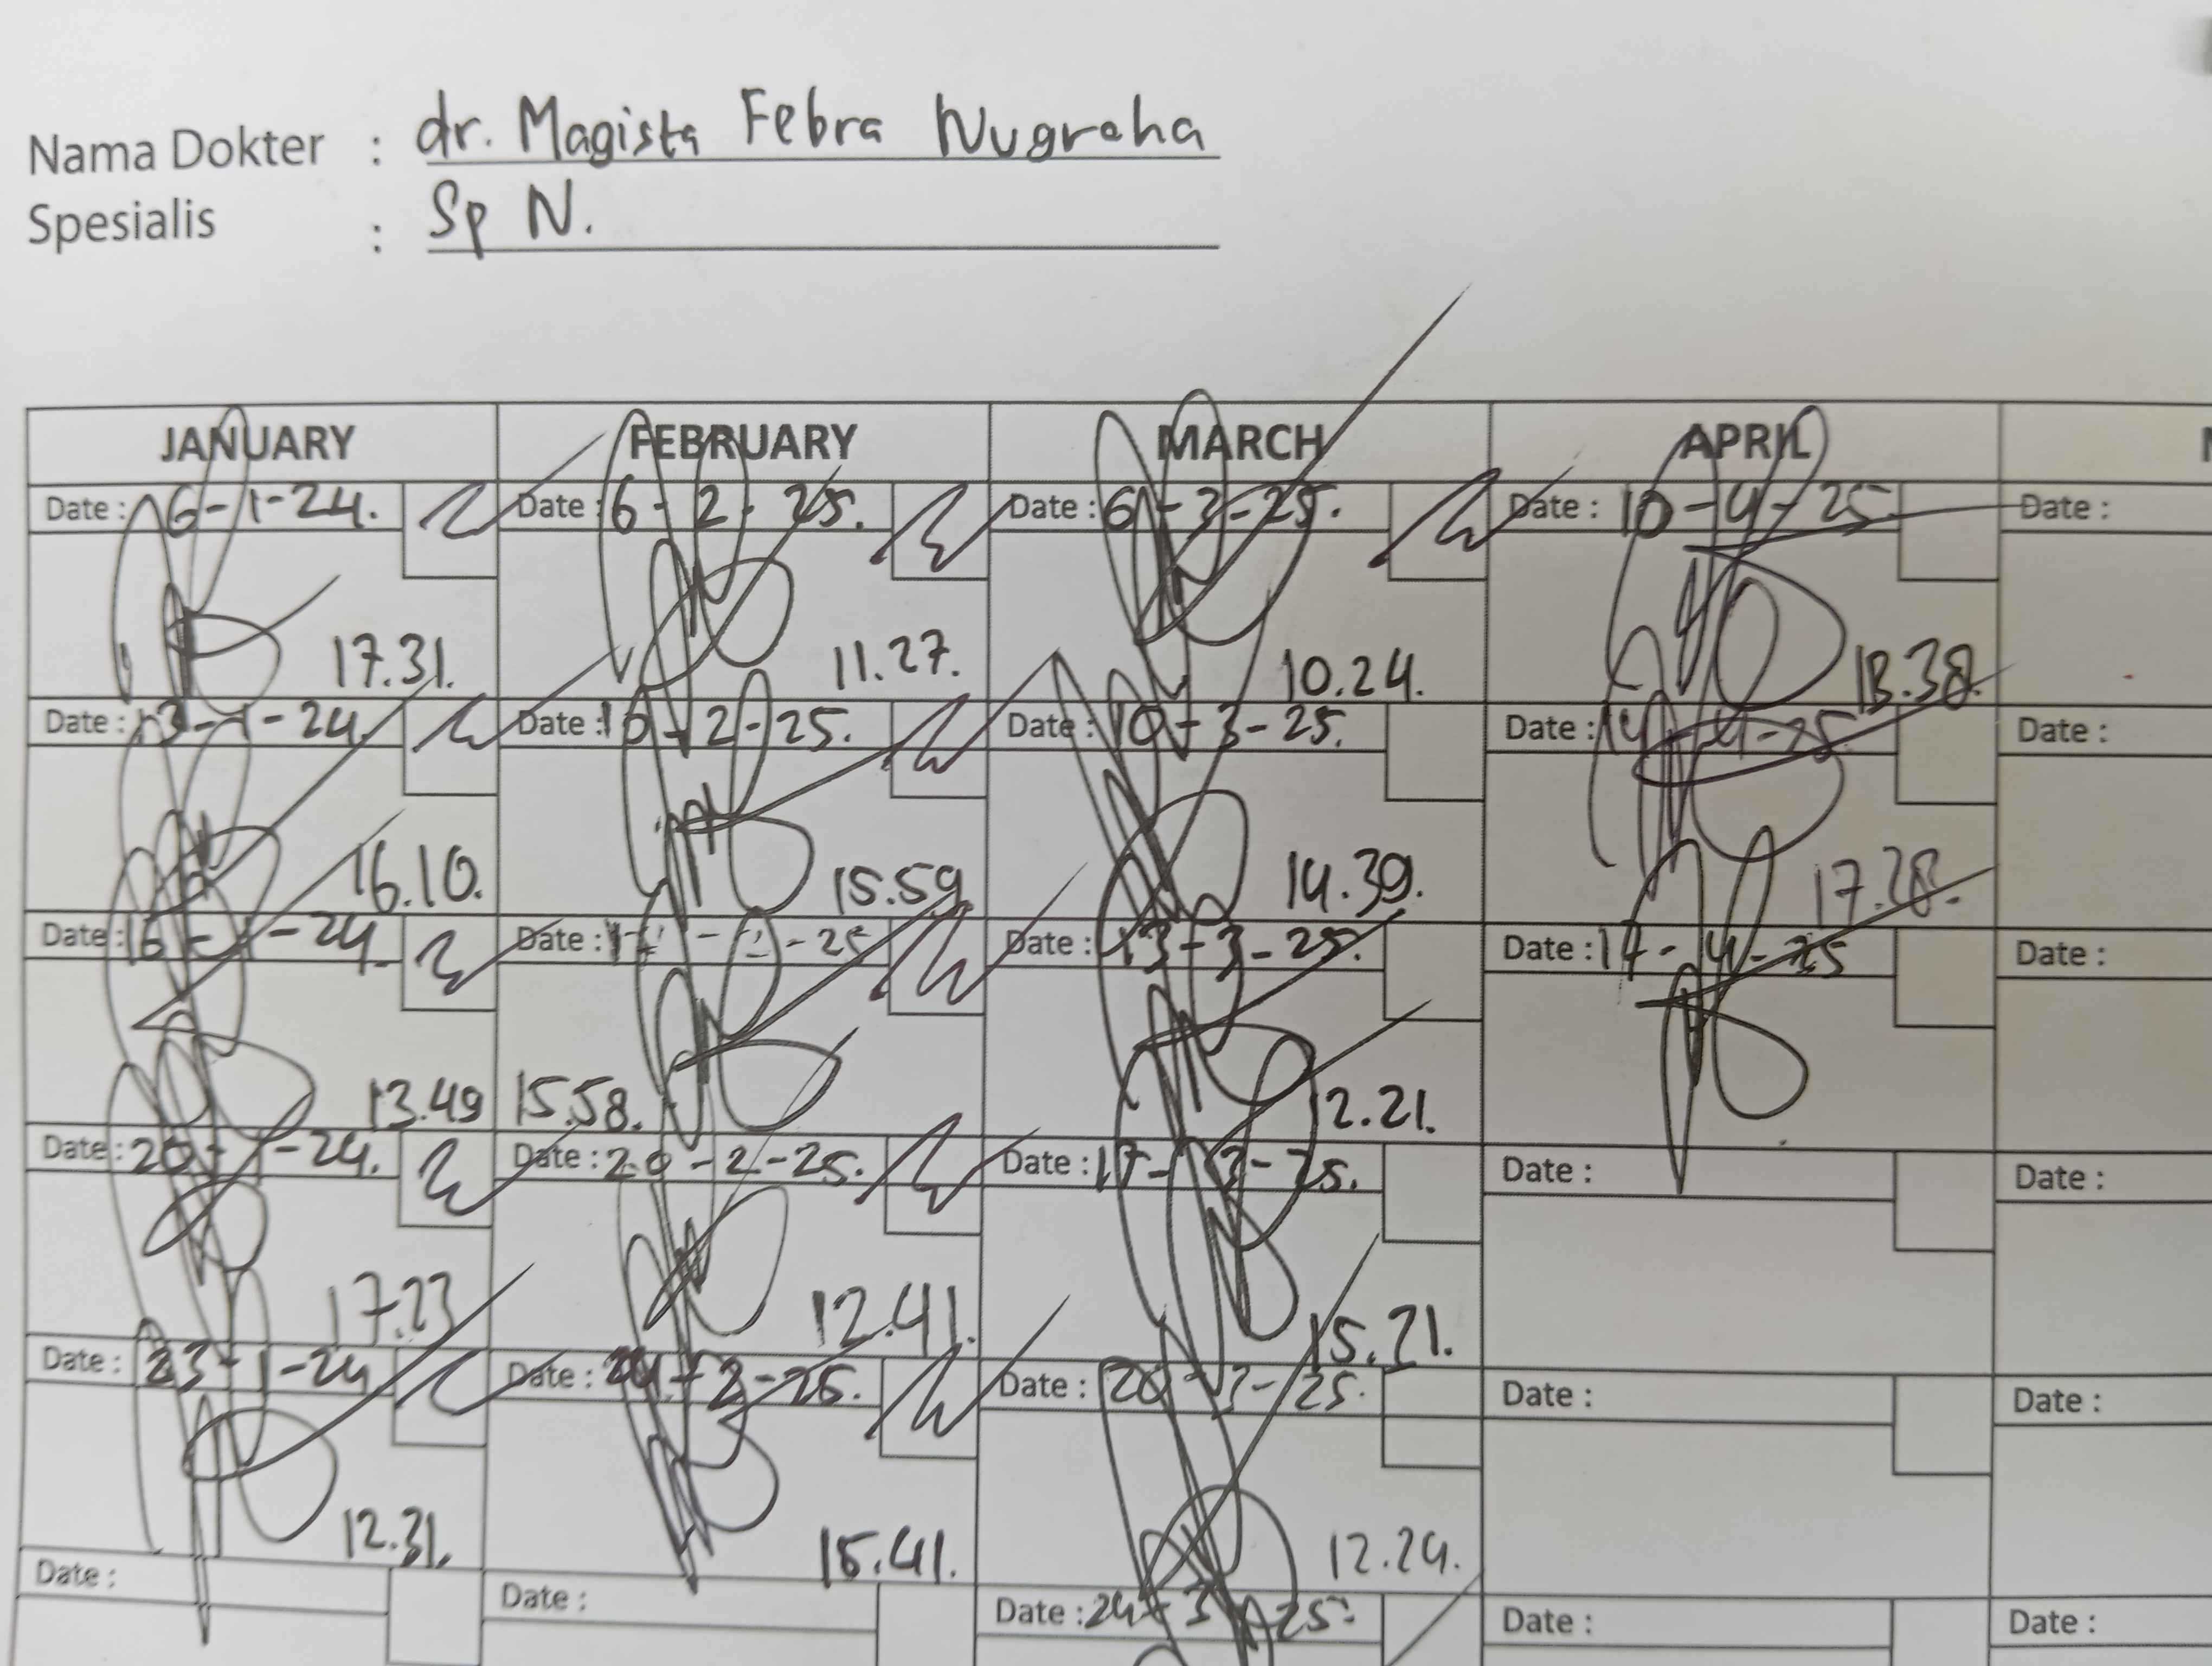 Nama Dokter : dr. Magista Febra Nugraha
Spesialis : Sp N.
JANUARY FEBRUARY MARCH APRIL
Date : 6-1-24. Date : 6-2-25. Date : 6-3-25. Date : 10-4-25 Date :
17.31. 11.27. 10.24. 18.38.
Date : 13-1-24. Date : 10-2-25. Date : 10-3-25. Date : 14-4-25 Date :
16.10. 15.59 14.39. 17.28.
Date : 16-1-24 Date : Date : 13-3-25. Date : 17-4-25 Date :
13.49 15.58. 12.21.
Date : 20-1-24. Date : 20-2-25. Date : 17-3-25. Date : Date :
17.23 12.41. 15.21.
Date : 23-1-24 Date : 24-2-25. Date : 20-3-25. Date : Date :
12.31. 15.41. 12.24.
Date : Date : Date : 24-3-25. Date : Date :